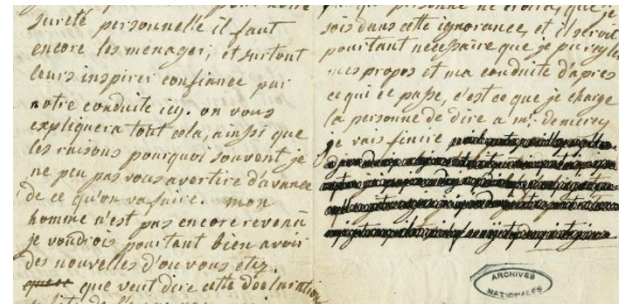 sureté personnelle il faut
encore les menager, et surtout
leurs inspirer confiance par
notre conduite icy. on vous
expliquera tout cela, ainsi que
les raisons pourquoi souvent je
ne peu pas vous avertire d'avance
de ce qu'on va faire. mon
homme n'est pas encore revenu
je voudrois pourtant bien avoir
des nouvelles d'ou vous etez.
que veut dire cette declaration
que personne ne croiroit que je
sois dans cette ignorance, et il seroit
pourtant necessaire que je puisse
mes propos et ma conduite d'apres
ce qui ce passe, c'est ce que je charge
la personne de dire a mr.
je vais finire
ARCHIVES
NATIONALES